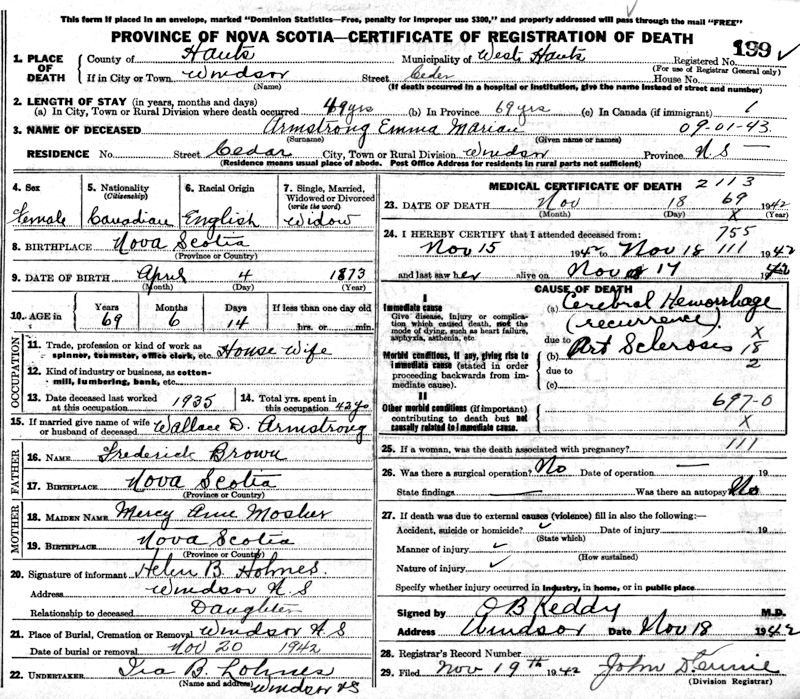 This form if placed in an envelope, marked "Dominion Statistics—Free, penalty for improper use $300," and properly addressed will pass through the mail "FREE"
PROVINCE OF NOVA SCOTIA—CERTIFICATE OF REGISTRATION OF DEATH
199
1. PLACE OF DEATH
County of Hants Municipality of West Hants Registered No.
(For use of Registrar General only)
If in City or Town Windsor Street Ceder House No.
(Name) (If death occurred in a hospital or institution, give the name instead of street and number)
2. LENGTH OF STAY (in years, months and days)
(a) In City, Town or Rural Division where death occurred 49 yrs (b) In Province 69 yrs (c) In Canada (if immigrant) 1
3. NAME OF DECEASED Armstrong Emma Marian 09-01-43.
(Surname) (Given name or names)
RESIDENCE No. Street Cedar City, Town or Rural Division Windsor Province N.S —
(Residence means usual place of abode. Post Office Address for residents in rural parts not sufficient)
4. Sex 5. Nationality (Citizenship) 6. Racial Origin 7. Single, Married, Widowed or Divorced (write the word)
Female Canadian English Widow
8. BIRTHPLACE Nova Scotia
(Province or Country)
9. DATE OF BIRTH April 4 1873
(Month) (Day) (Year)
10. AGE in Years Months Days If less than one day old
69 6 14 hrs. or min.
OCCUPATION
11. Trade, profession or kind of work as spinner, teamster, office clerk, etc. House Wife
12. Kind of industry or business, as cotton-mill, lumbering, bank, etc.
13. Date deceased last worked at this occupation 1935 14. Total yrs. spent in this occupation 42 yo
15. If married give name of wife or husband of deceased Wallace D. Armstrong
FATHER
16. NAME Frederick Brown
17. BIRTHPLACE Nova Scotia
(Province or Country)
MOTHER
18. MAIDEN NAME Mercy Ann Mosher
19. BIRTHPLACE Nova Scotia
(Province or Country)
20. Signature of informant Helen B. Holmes.
Address Windsor N.S
Relationship to deceased Daughter
21. Place of Burial, Cremation or Removal Windsor N.S
Date of burial or removal Nov 20 1942
22. UNDERTAKER Ira B. Lohnes
(Name and address) Windsor NS
MEDICAL CERTIFICATE OF DEATH 2113
23. DATE OF DEATH Nov 18 69 1942
(Month) (Day) X (Year)
24. I HEREBY CERTIFY that I attended deceased from: 755
Nov 15 194 to Nov 18 111 1942
and last saw her alive on Nov 17 42
CAUSE OF DEATH
I
Immediate cause
Give disease, injury or complication which caused death, not the mode of dying, such as heart failure, asphyxia, asthenia, etc.
(a) Cerebral Hemorrhage
(recurrence) X
due to Art Sclerosis 18
Morbid conditions, if any, giving rise to immediate cause (stated in order proceeding backwards from immediate cause).
(b) 2
due to
(c)
II
Other morbid conditions (if important) contributing to death but not causally related to immediate cause.
697-0
X
25. If a woman, was the death associated with pregnancy? 111
26. Was there a surgical operation? No Date of operation — 19
State findings — Was there an autopsy? No
27. If death was due to external causes (violence) fill in also the following:—
Accident, suicide or homicide? ✓ Date of injury 19
(State which)
Manner of injury ✓
(How sustained)
Nature of injury ✓
Specify whether injury occurred in industry, in home, or in public place
Signed by O B Keddy M.D.
Address Windsor Date Nov 18 1942
28. Registrar's Record Number
29. Filed Nov 19th 1942 John
(Division Registrar)